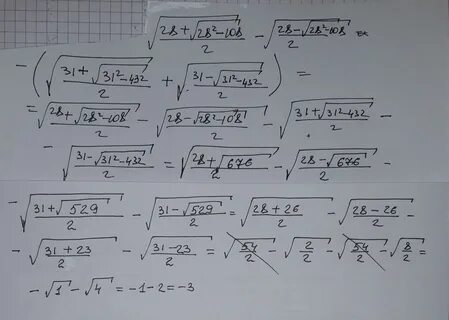 √((28+√(28²-108))/2) - √((28-√(28²-108))/2)
-(√((31+√(31²-432))/2) + √((31-√(31²-432))/2)) =
=√((28+√(28²-108))/2) - √((28-√(28²-108))/2) - √((31+√(31²-432))/2) -
- √((31-√(31²-432))/2) = √((28+√676)/2) - √((28-√676)/2) -
- √((31+√529)/2) - √((31-√529)/2) = √((28+26)/2) - √((28-26)/2) -
- √((31+23)/2) - √((31-23)/2) = √(54/2) - √(2/2) - √(54/2) - √(8/2) =
- √1 - √4 = -1-2=-3